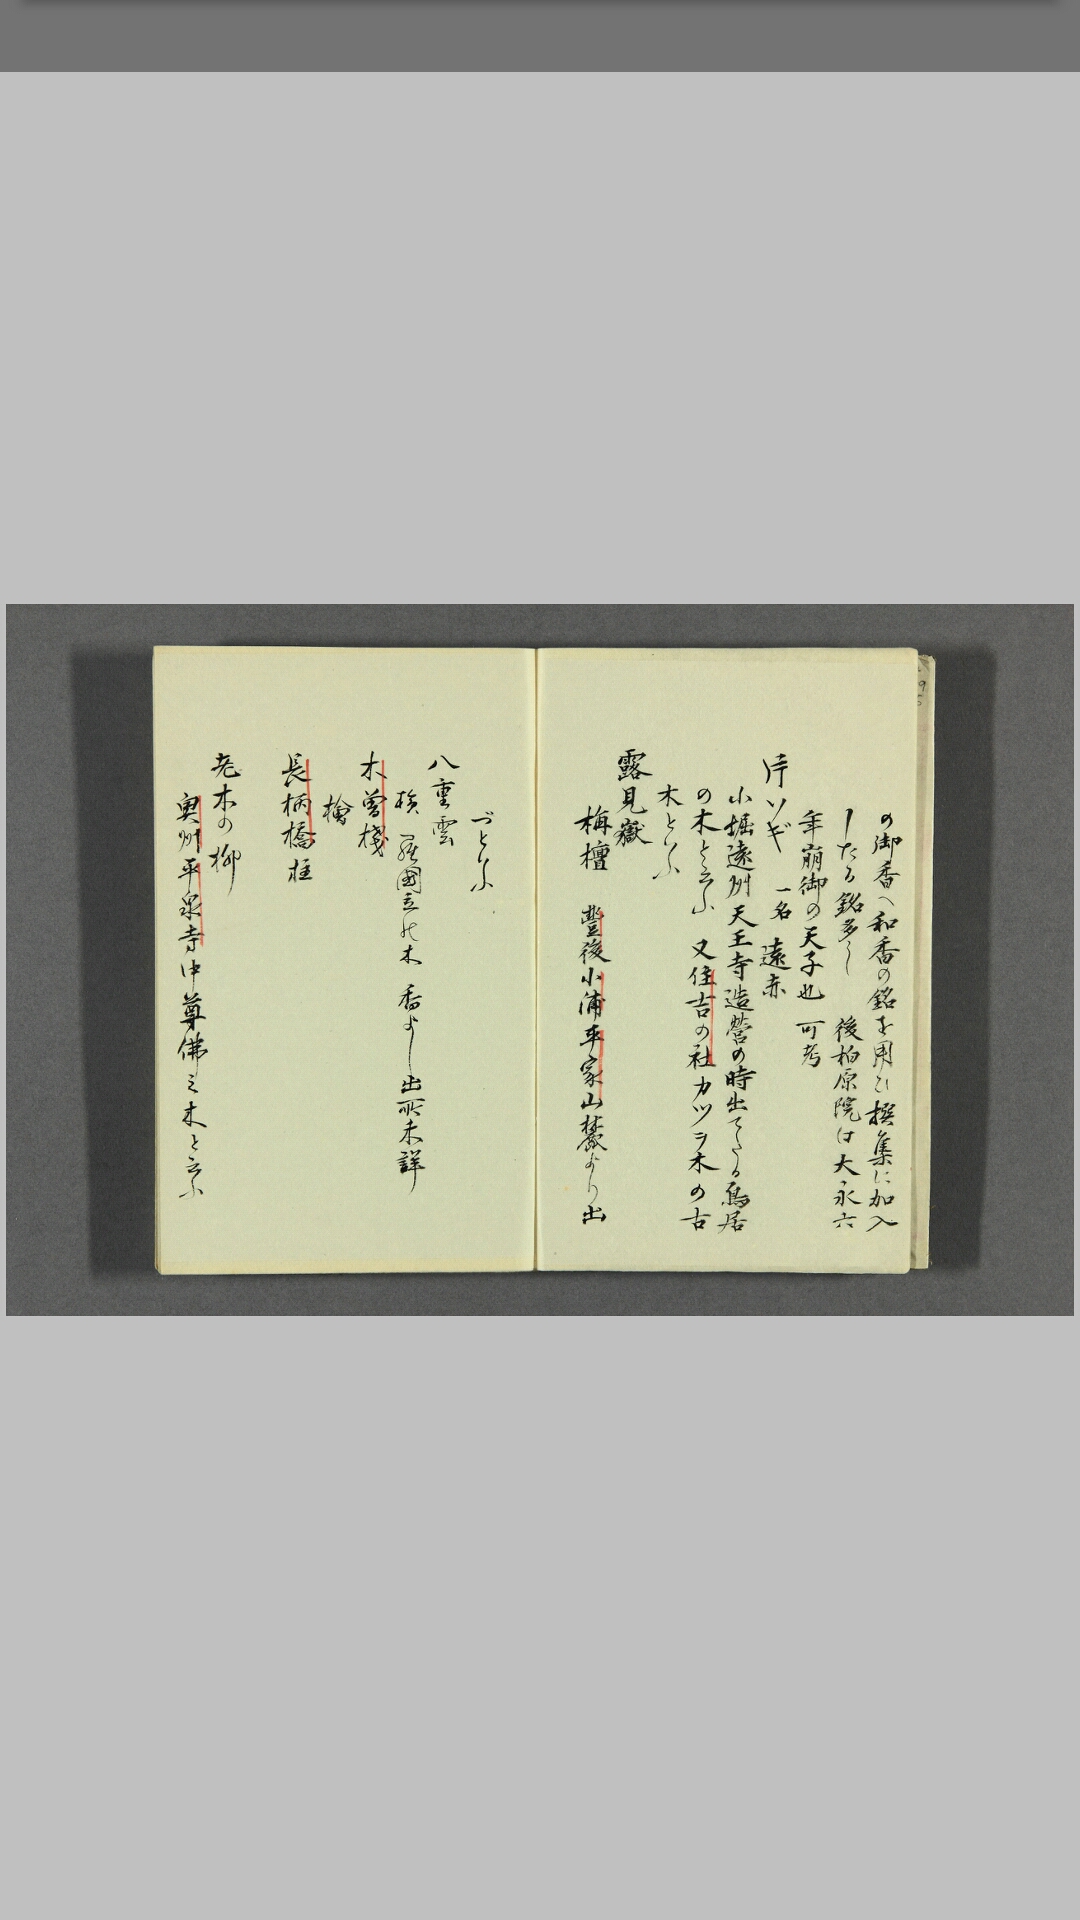 の御香へ和香の銘を用ひ撰集に加入
したる銘多し　後柏原院は大永六
年崩御の天子也　可考
片ソギ　一名　遠赤
小堀遠州天王寺造營の時出てたる鳥居
の木と云ふ　又住吉の社カツラ木の古
木といふ
露見嶽
梅檀　豐後小浦平家山麓より出
づといふ
八重雲
檳　羅國立の木　香よし出所未詳
木曽棧
檜
長柄橋柱
老木の柳
奥州平泉寺中尊佛之木と云ふ